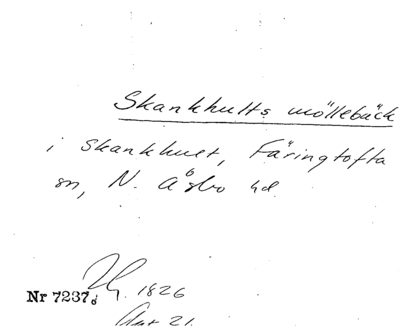 Skankhults möllebäck
i Skankhult, Färingtofta
sn, N. Åsbo hd.
Nr 7237d
1826